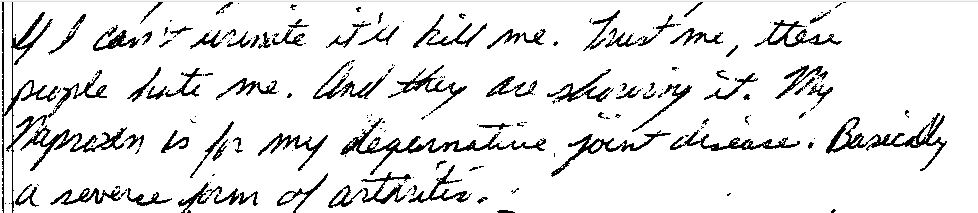 If I can't urinate it'll kill me. Trust me, these
people hate me. And they are showing it. My
Naproxen is for my degernative joint disease. Basically
a severe form of arthritis.